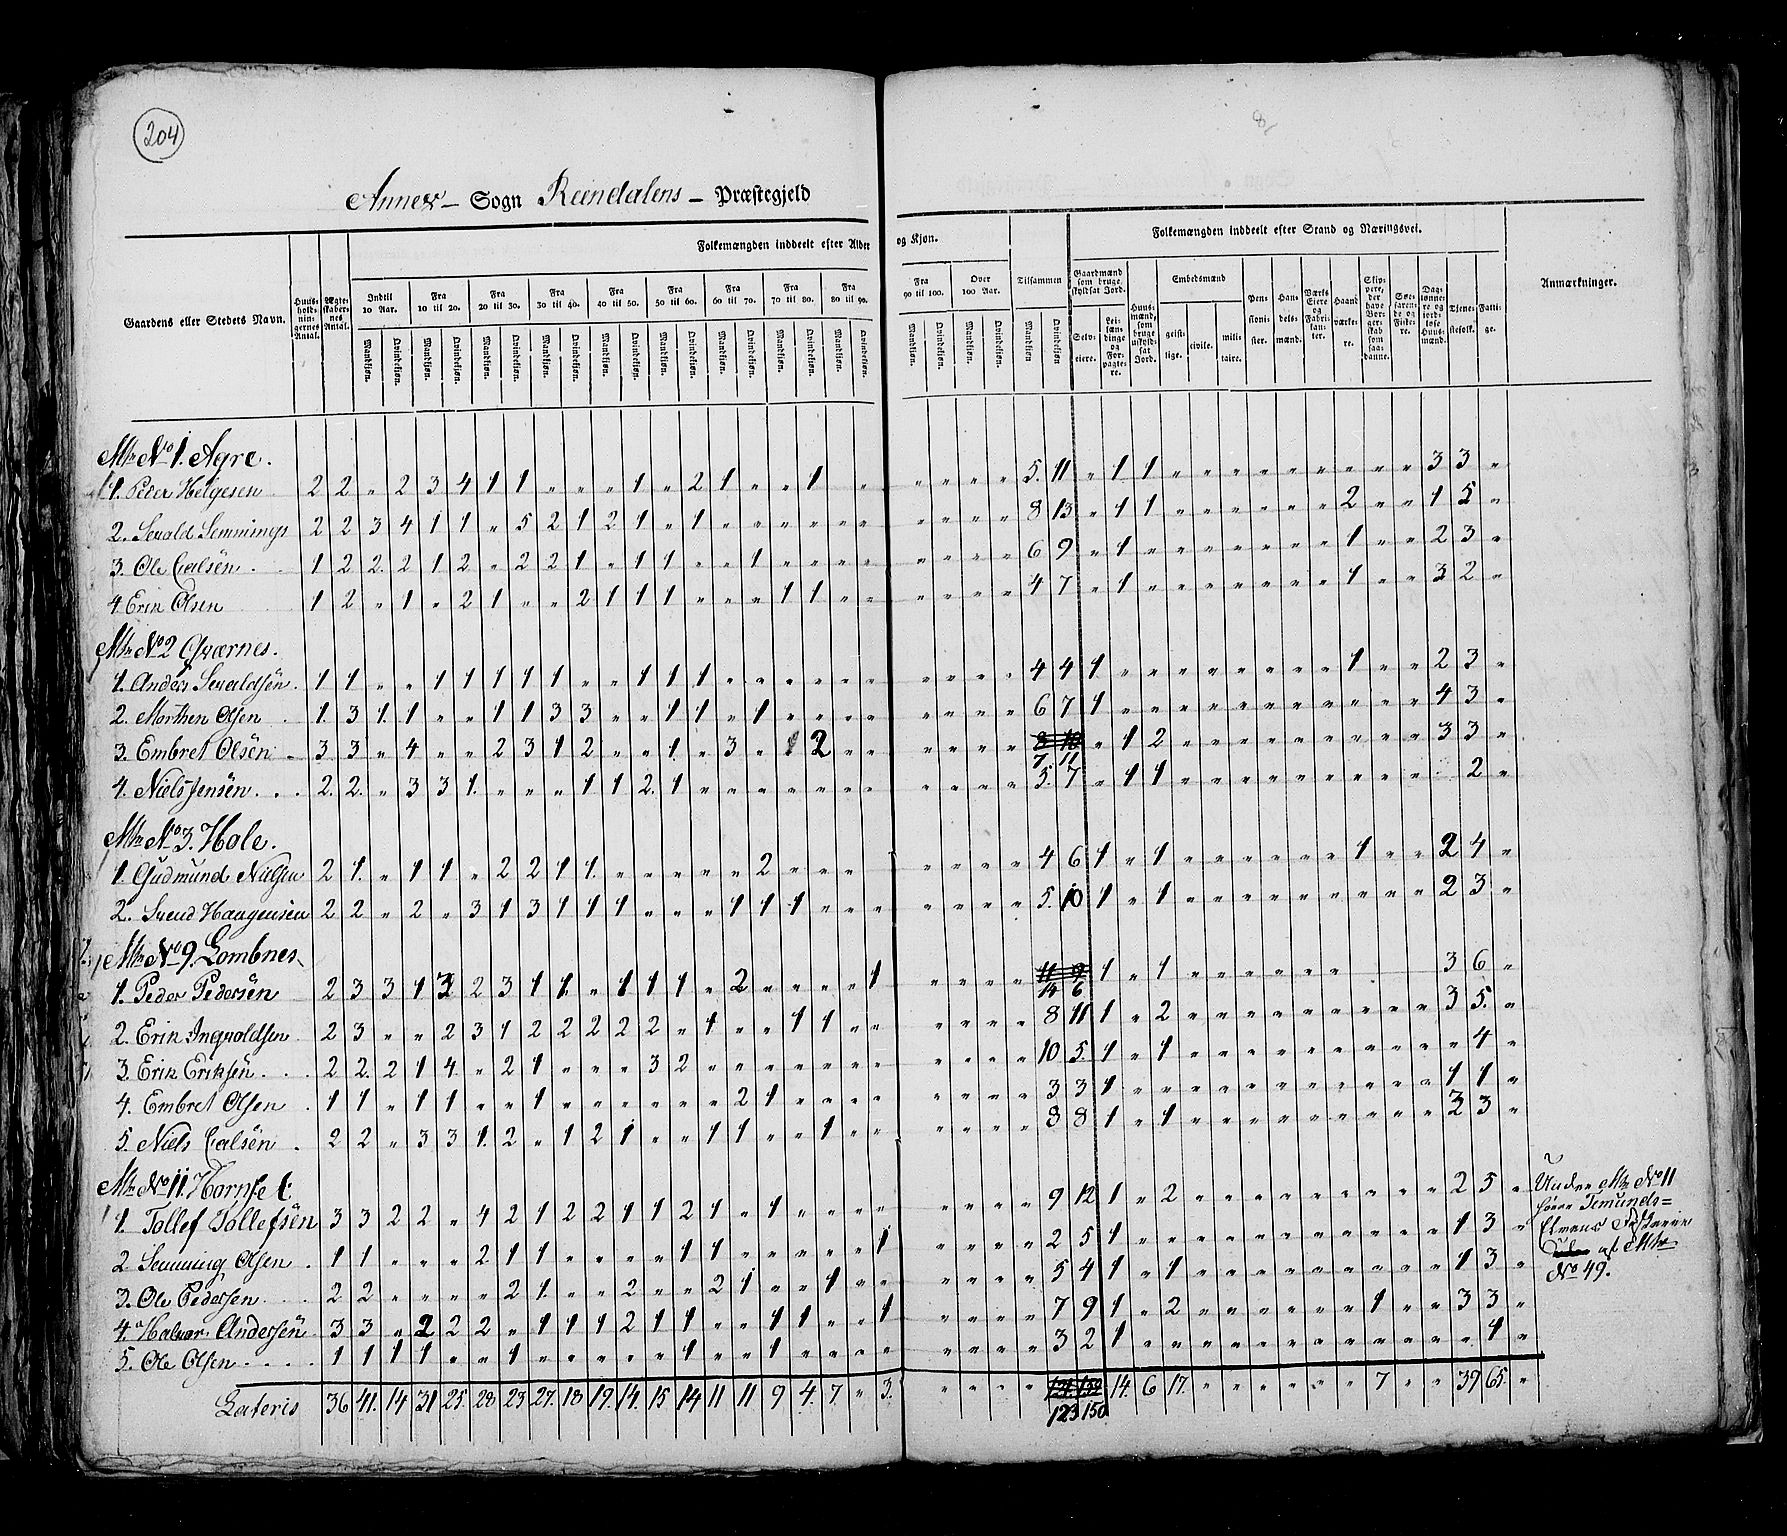 204
8
Annex – Sogn Reendalens – Præstegjeld
Gaardens eller Stedets Navn.
Huus-holdnin-gernes Antal.
Ægte-skaber-nes Antal.
Folkemængden inddeelt efter Alder og Kjøn.
Indtil 10 Aar.
Fra 10 til 20.
Fra 20 til 30.
Fra 30 til 40.
Fra 40 til 50.
Fra 50 til 60.
Fra 60 til 70.
Fra 70 til 80.
Fra 80 til 90.
Fra 90 til 100.
Over 100 Aar.
Tilsammen
Mandkjøn. Qvindekjøn.
Folkemængden inddeelt efter Stand og Næringsvei.
Gaardmænd som bruge skyldsat Jord.
Selv-eiere.
Lei-lændinge og For-pagte-re.
Huus-mænd, som bruge uskyld-sat Jord.
Embedsmænd
geist-lige.
civile.
mili-taire.
Pen-sioni-ster.
Han-dels-mænd.
Værks Eiere og Fabri-kan-ter.
Haand værke-re.
Skip-pere, der have Bor-ger-skab som saa-danne.
Søe-faren-de og Fiske-re.
Dag-lønne-re og jord-løse Huus-mænd.
Tjene-stefolk.
Fatti-ge.
Anmærkninger.
Mtr No 1. Agre.
1. Peder Helgesen 2 2 „ 2 3 4 1 1 „ „ „ 1 „ 2 1 „ „ 1 „ „ „ „ „ 5. 11 „ 1 1 „ „ „ „ „ „ „ „ „ 3 3 „
2. Sevald Semmings 2 2 3 4 1 1 „ 5 2 1 2 1 „ 1 „ „ „ „ „ „ „ „ „ „ 8 13 „ 1 1 „ „ „ „ „ „ 2 „ „ 1 5 „
3. Ole Calsën 1 2 2 2 1 2 „ 2 2 1 „ 1 1 „ „ 1 „ „ „ „ „ „ „ „ 6 9 „ 1 „ „ „ „ „ „ „ 1 „ „ 2 3 „
4. Erik Olsen 1 2 „ 1 „ 2 1 „ „ 2 1 1 1 „ „ „ 1 1 „ „ „ „ „ „ 4 7 „ 1 „ „ „ „ „ „ „ 1 „ „ 3 2 „
Mtr No 2 Qværnes.
1. Anders Sevaldsën. 1 1 „ „ 1 1 1 1 1 „ „ 1 1 1 „ „ „ „ „ „ „ „ „ „ 4 4 1 „ „ „ „ „ „ „ „ 1 „ „ 2 3 „
2. Morthen Olsen 1. 3 1. 1 „ „ 1 1 3 3 „ „ 1 1 „ 1 „ „ „ „ „ „ „ „ 6 7 1 „ „ „ „ „ „ „ „ „ „ „ 4 3 „
3. Embret Olsën 3 3 „ 4 „ „ 2 3 1 2 „ „ 1. „ 3 „ 1 2 „ „ „ „ „ „ 8 10 7 11 „ 1 2 „ „ „ „ „ „ „ „ „ 3 3 „
4. Niels Jensën 2. 2. „ 3 3 1. „ „ „ 1 1 2. 1 „ „ „ „ „ „ „ „ „ „ „ 5. 7 „ 1 1 „ „ „ „ „ „ „ „ „ 2 „
Mtr No 3. Hole.
1. Gudmund Nielsen 2 1. „ 1 1 „ 2 2 1 1. „ „ „ „ „ 2 „ „ „ „ „ „ „ 4 6 1 „ 1 „ „ „ „ „ „ 1 „ „ 2 4 „
2. Svend Haagensën 2 2 „ 2 „ 3 1 3 1 1 1 „ „ „ 1 1 1 „ „ „ „ „ „ „ 5. 10 1 „ 1 „ „ „ „ „ „ „ „ „ 2 3 „
Mtr No 9. Lombnes
1. Peder Pedersën 2 3 3 1 3 2 3 1 1. „ 1 1 1 „ 2 „ „ „ „ 1 „ „ „ „ 11 9 14 6 1 „ 1 „ „ „ „ „ „ 3 6 „
2. Erik Ingvoldsen 2 3 „ „ 2 3 1 2 2 2 2 2 „ 1 „ „ 1 1 „ „ „ „ „ „ 8 11 1 „ 2 „ „ „ „ „ „ „ „ „ 3 5. „
3. Erik Eriksën 2 2. 2 1 4 „ 2 1 „ „ „ 3 2 „ „ „ „ „ „ „ „ „ „ 10 5. 1 „ 1 „ „ „ „ „ „ „ „ „ „ 4 „
4. Embret Olsen 1 1 „ 1 1 „ „ 1 „ „ „ „ „ „ 2 1 „ „ „ „ „ „ „ 3 3 1 „ „ „ „ „ „ „ „ „ „ „ 1 1 „
5. Niels Calsën 2 2 „ 3 3 1. 2 „ 1 2 1 „ „ 1 1 „ „ 1 „ „ „ „ „ „ 8 8 1 „ 1 „ „ „ „ „ „ „ „ „ 2 3 „
Mtr No 11. Hornset
1. Tollef Tollefsën 3 3 2 2 „ 4 2 1 2 2 1 1 2 1 „ 1 „ „ „ „ „ „ „ „ 9 12 1 „ 2 „ „ „ „ „ „ „ „ „ 2 5 „
2. Semming Olsen 1 1 „ „ „ 2 1 1 „ „ „ „ 1 1 „ „ „ „ „ 1 „ „ „ „ 2 5 1 „ „ „ „ „ „ „ „ „ „ „ 1 3 „
3. Ole Pedersen 2 2 „ „ „ „ 2 1. „ „ 2 „ „ 2 1 „ „ 1 „ „ „ „ „ „ 5 4 1 „ 1 „ „ „ „ „ „ „ „ „ 1 3 „
4. Halvor Andersën 3 3 „ 2 2 2 „ 1 1 1 2 1 1 „ „ 1 1 „ „ 1 „ „ „ „ 7 9 1 „ 2 „ „ „ „ „ „ 1 „ „ 3 3 „
5. Ole Olsen 1 1 1 1 „ „ 1 „ „ „ „ „ 1 „ „ 1 „ „ „ „ „ „ „ „ 3 2 1 „ „ „ „ „ „ „ „ „ „ „ „ 1 „
Under Mtr No 11
høre
af Mtr
No 49.
Lateris 36 41. 14 31 25. 28 23 27. 18 19. 14. 15 14 11 11 9 4. 7. „ 3. „ „ „ „ 123 150 14. 6 17. „ „ „ „ „ „ 7 „ „ 39 65. „